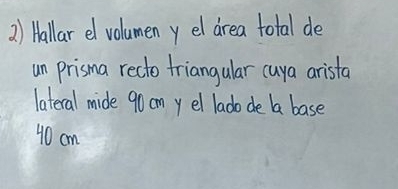 2) Hallar el volumen y el área total de
un prisma recto triangular cuya arista
lateral mide 90 cm y el lado de la base
40 cm